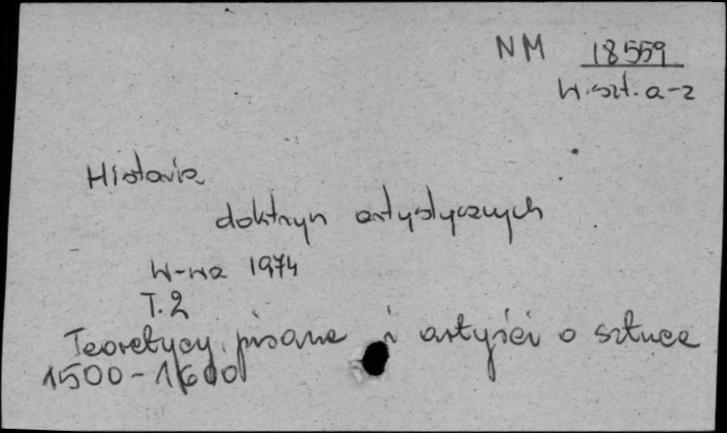 NM 18559
W.szt. a-z
Historia
doktryn artystycznych
W-wa 1974
T. 2
Teoretycy, pisarze i artyści o sztuce
1500-1600